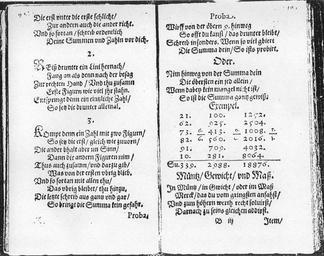 Die erst unter die erste schlichte/
Zur andern auch die ander richt.
Und so fortan / schreib ordentlich
Deine Summen und Zahlen vor dich.
2.
Reiß drunter ein Lini hernach/
Fang an als denn nach der besag
Zur rechten Hand / Und thu zusamen
Erste Figurn wie viel ihr kamen.
Entspringt denn ein einliche Zahl/
So setz die drunter allemal.
3.
Kompt denn ein Zahl mit zwo Figurn/
So setz die erst / gleich wie zuvorn/
Die ander bhalt aber im Sinn/
Dann die andern Figurn nim/
Thus auch zusam / und darzu gib/
Was von der ersten ubrig blieb.
Und so fortan mit allen thu/
Das ubrig bleibet / thu hinzu,
Die letzte schreib aus gantz und gar/
So bringt die Summa kein gefahr.
Proba,
Proba.
Wirff von der öbern 9. hinweg
So offt du kanst / das drunter bleibt/
Schreib in sonders. Wenn so viel gibt
Die Summa dein / So ists probirt.
Oder.
Nim hinweg von der Summa dein
Die obersten all
Wenn dabey kein mangel nicht ist/
So ist die Summa gantz gewiß:
Exempel.
21. 100. 1272.
62. 925. 2504.
73. 413. 1008.
82. 560. 2016.
91. 709. 4032.
10. 281. 8064.
Su. 339. 2988. 18876.
Müntz / Gewicht / und Maß.
In Müntz / in Gwicht / oder im Maß
Merck / das du vom gringsten anfahst/
Und zum höhern werth recht solvirst/
Darnach zu seins gleichen addirst.
B iij Item/